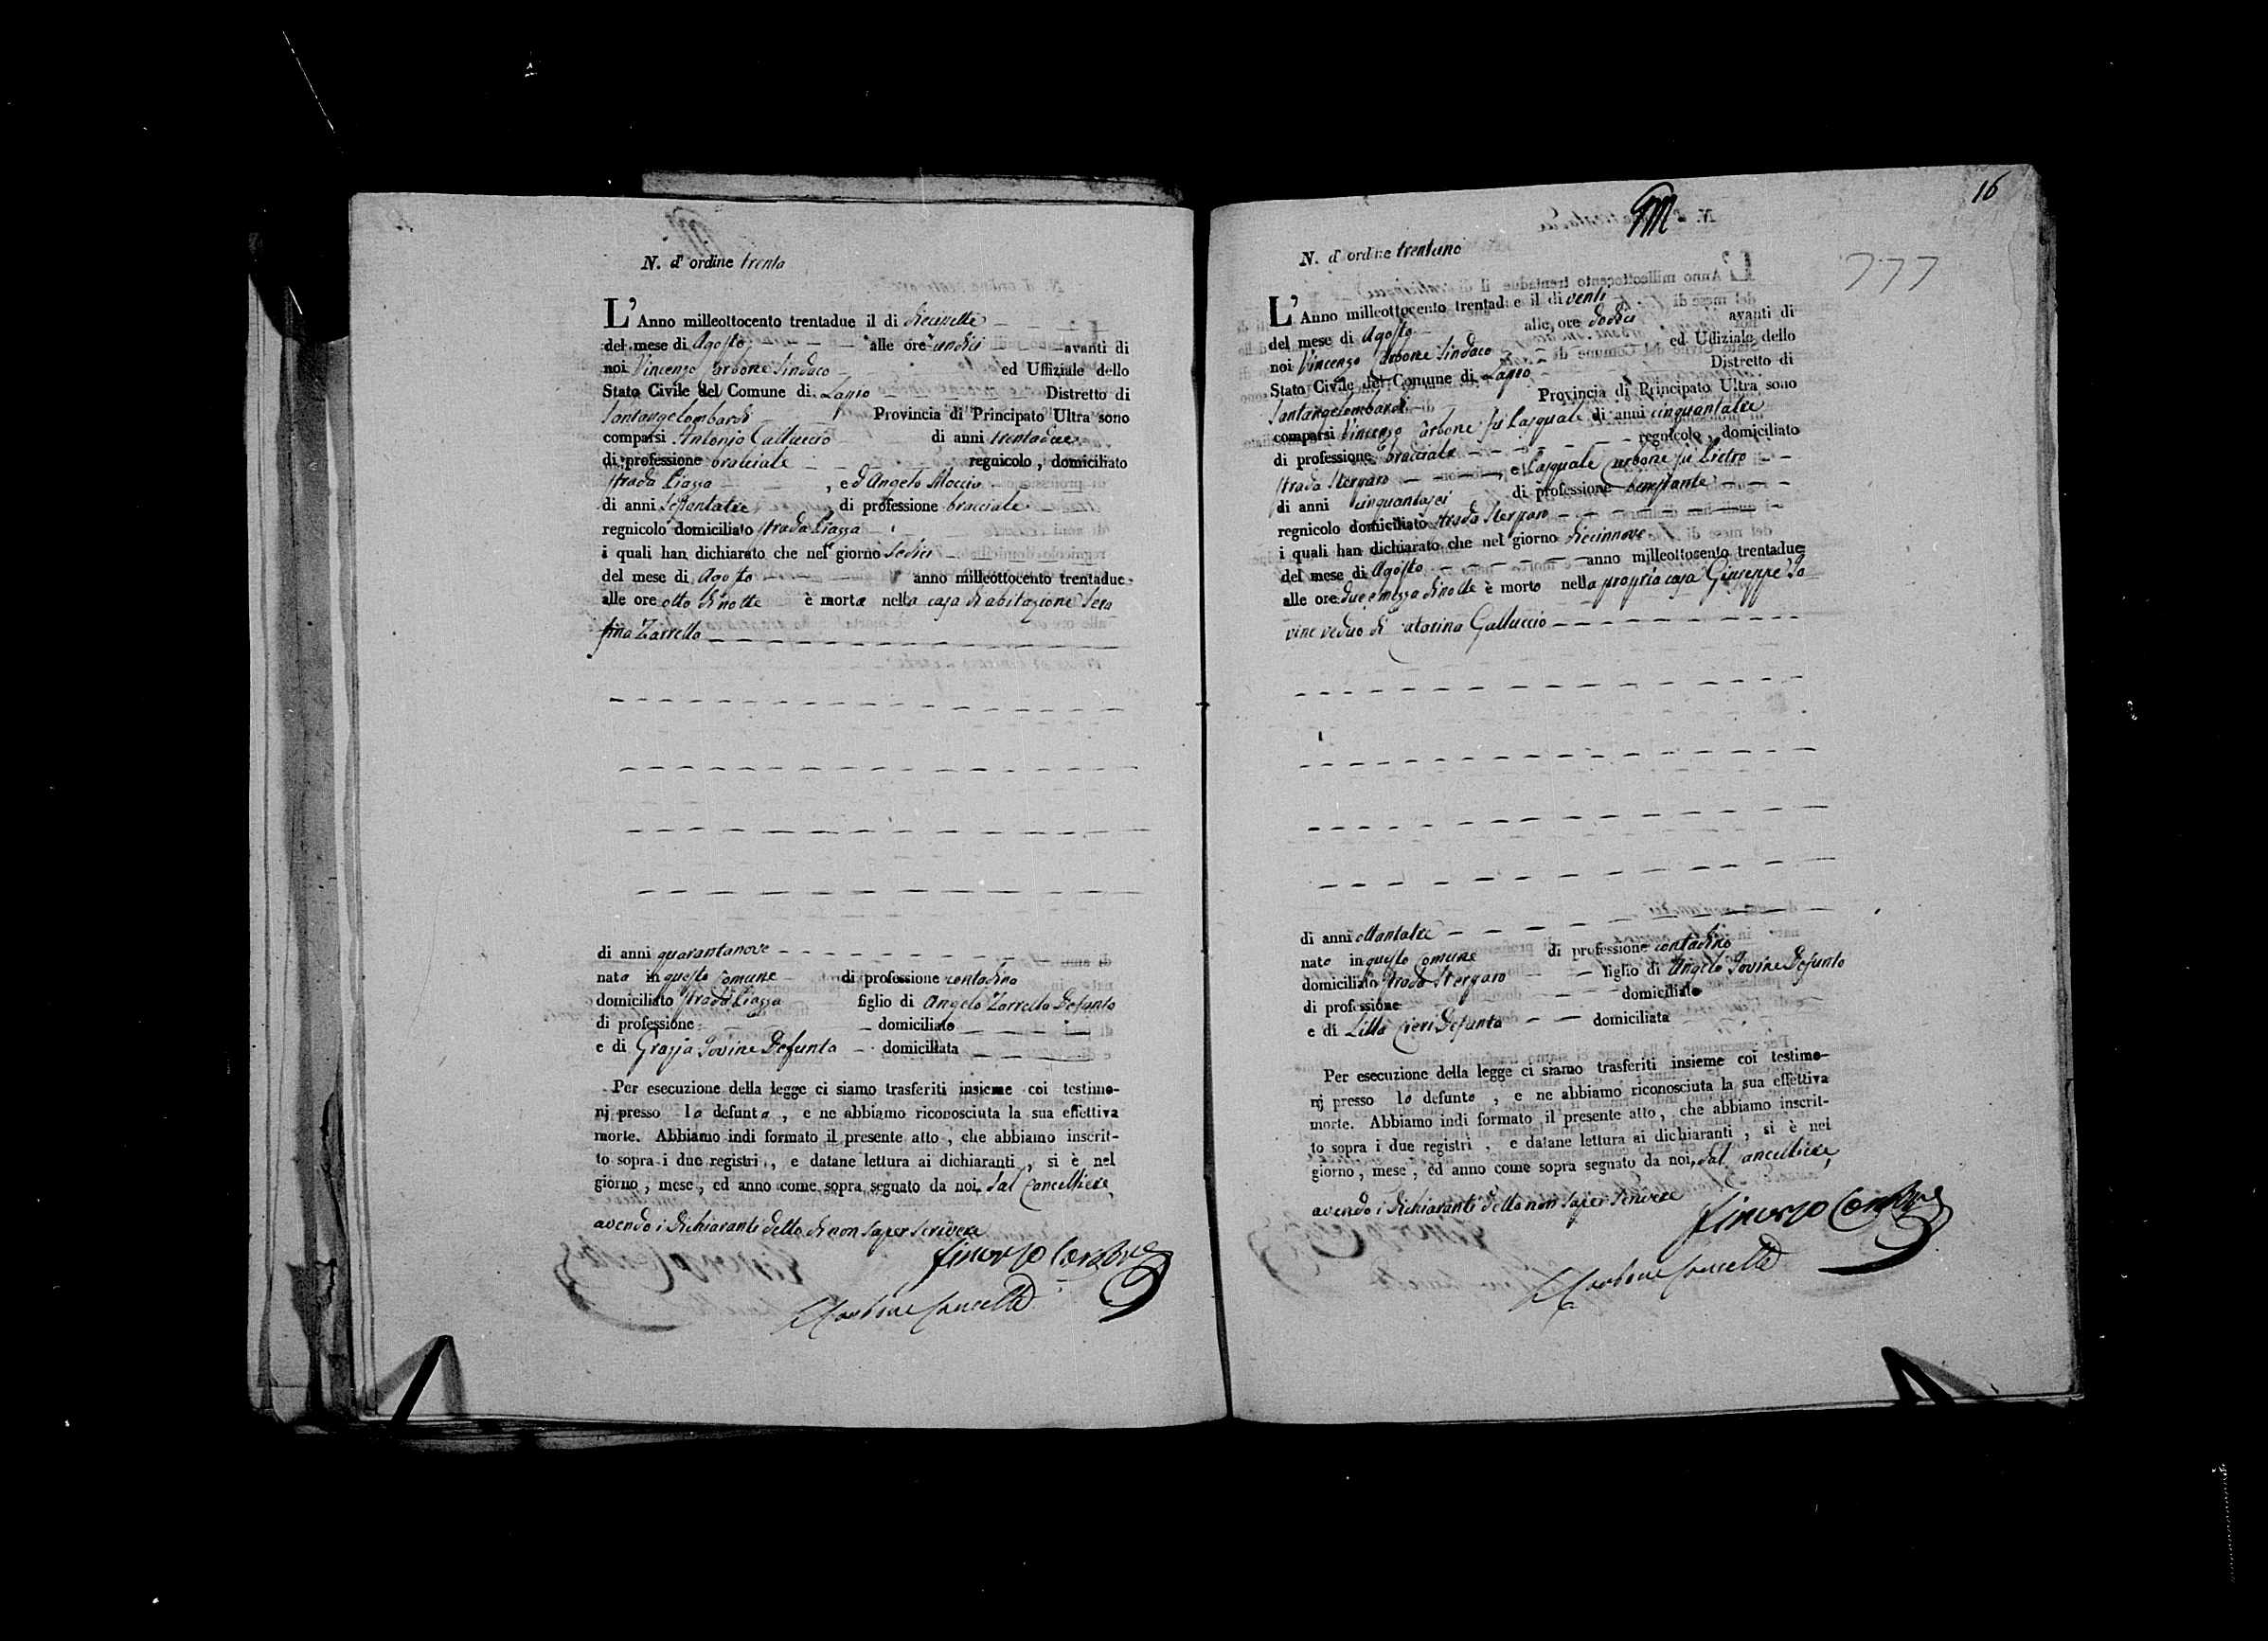 N. d' ordine trenta
L' Anno milleottocento trentadue il di diecisette
del mese di Agosto alle ore undici avanti di
noi Vincenzo Carbone Sindaco ed Uffiziale dello
Stato Civile del Comune di Lapio Distretto di
Santangelombardi Provincia di Principato Ultra sono
comparsi Antonio Galluccio di anni trentadue
di professione bracciale regnicolo, domiciliato
strada Piazza, ed Angelo Moccia
di anni settantatre di professione bracciale
regnicolo domiciliato strada Piazza
i quali han dichiarato che nel giorno sedici
del mese di Agosto anno milleottocento trentadue
alle ore otto di notte è morta nella casa di abitazione Sera
fina Zarrella
di anni quarantanove
nata in questo Comune di professione contadina
domiciliato strada Piazza figlio di Angelo Zarrella defunto
di professione domiciliato
e di Grazia Iovine defunta domiciliata
Per esecuzione della legge ci siamo trasferiti insieme coi testimo-
nj presso la defunta, e ne abbiamo riconosciuta la sua effettiva
morte. Abbiamo indi formato il presente atto, che abbiamo inscrit-
to sopra i due registri, e datane lettura ai dichiaranti, si è nel
giorno, mese, ed anno come sopra segnato da noi, dal Cancelliere,
avendo i dichiaranti detto di non saper scrivere
Vincenzo Carbone
Carbone Cancelle
16
777
N. d' ordine trentuno
L' Anno milleottocento trentadue il di venti
del mese di Agosto alle ore dodici avanti di
noi Vincenzo Carbone Sindaco ed Uffiziale dello
Stato Civile del Comune di Lapio Distretto di
Santangelombardi Provincia di Principato Ultra sono
comparsi Vincenzo Carbone fu Pasquale di anni cinquantatre
di professione bracciale regnicolo, domiciliato
strada Sterparo, e Pasquale Carbone fu Pietro
di anni cinquantasei di professione benestante
regnicolo domiciliato strada Sterparo
i quali han dichiarato che nel giorno diecinnove
del mese di Agosto anno milleottocento trentadue
alle ore due e mezza di notte è morto nella propria casa Giuseppe Io
vine veduo di Catarina Galluccio
di anni ottantatre
nato in questo Comune di professione contadino
domiciliato strada Sterparo figlio di Angelo Iovine defunto
di professione domiciliato
e di Lilla Cieri defunta domiciliata
Per esecuzione della legge ci siamo trasferiti insieme coi testimo-
nj presso lo defunto, e ne abbiamo riconosciuta la sua effettiva
morte. Abbiamo indi formato il presente atto, che abbiamo inscrit-
to sopra i due registri, e datane lettura ai dichiaranti, si è nel
giorno, mese, ed anno come sopra segnato da noi, dal Cancelliere,
avendo i dichiaranti detto non saper scrivere
Vincenzo Carbone
Carbone Cancelle